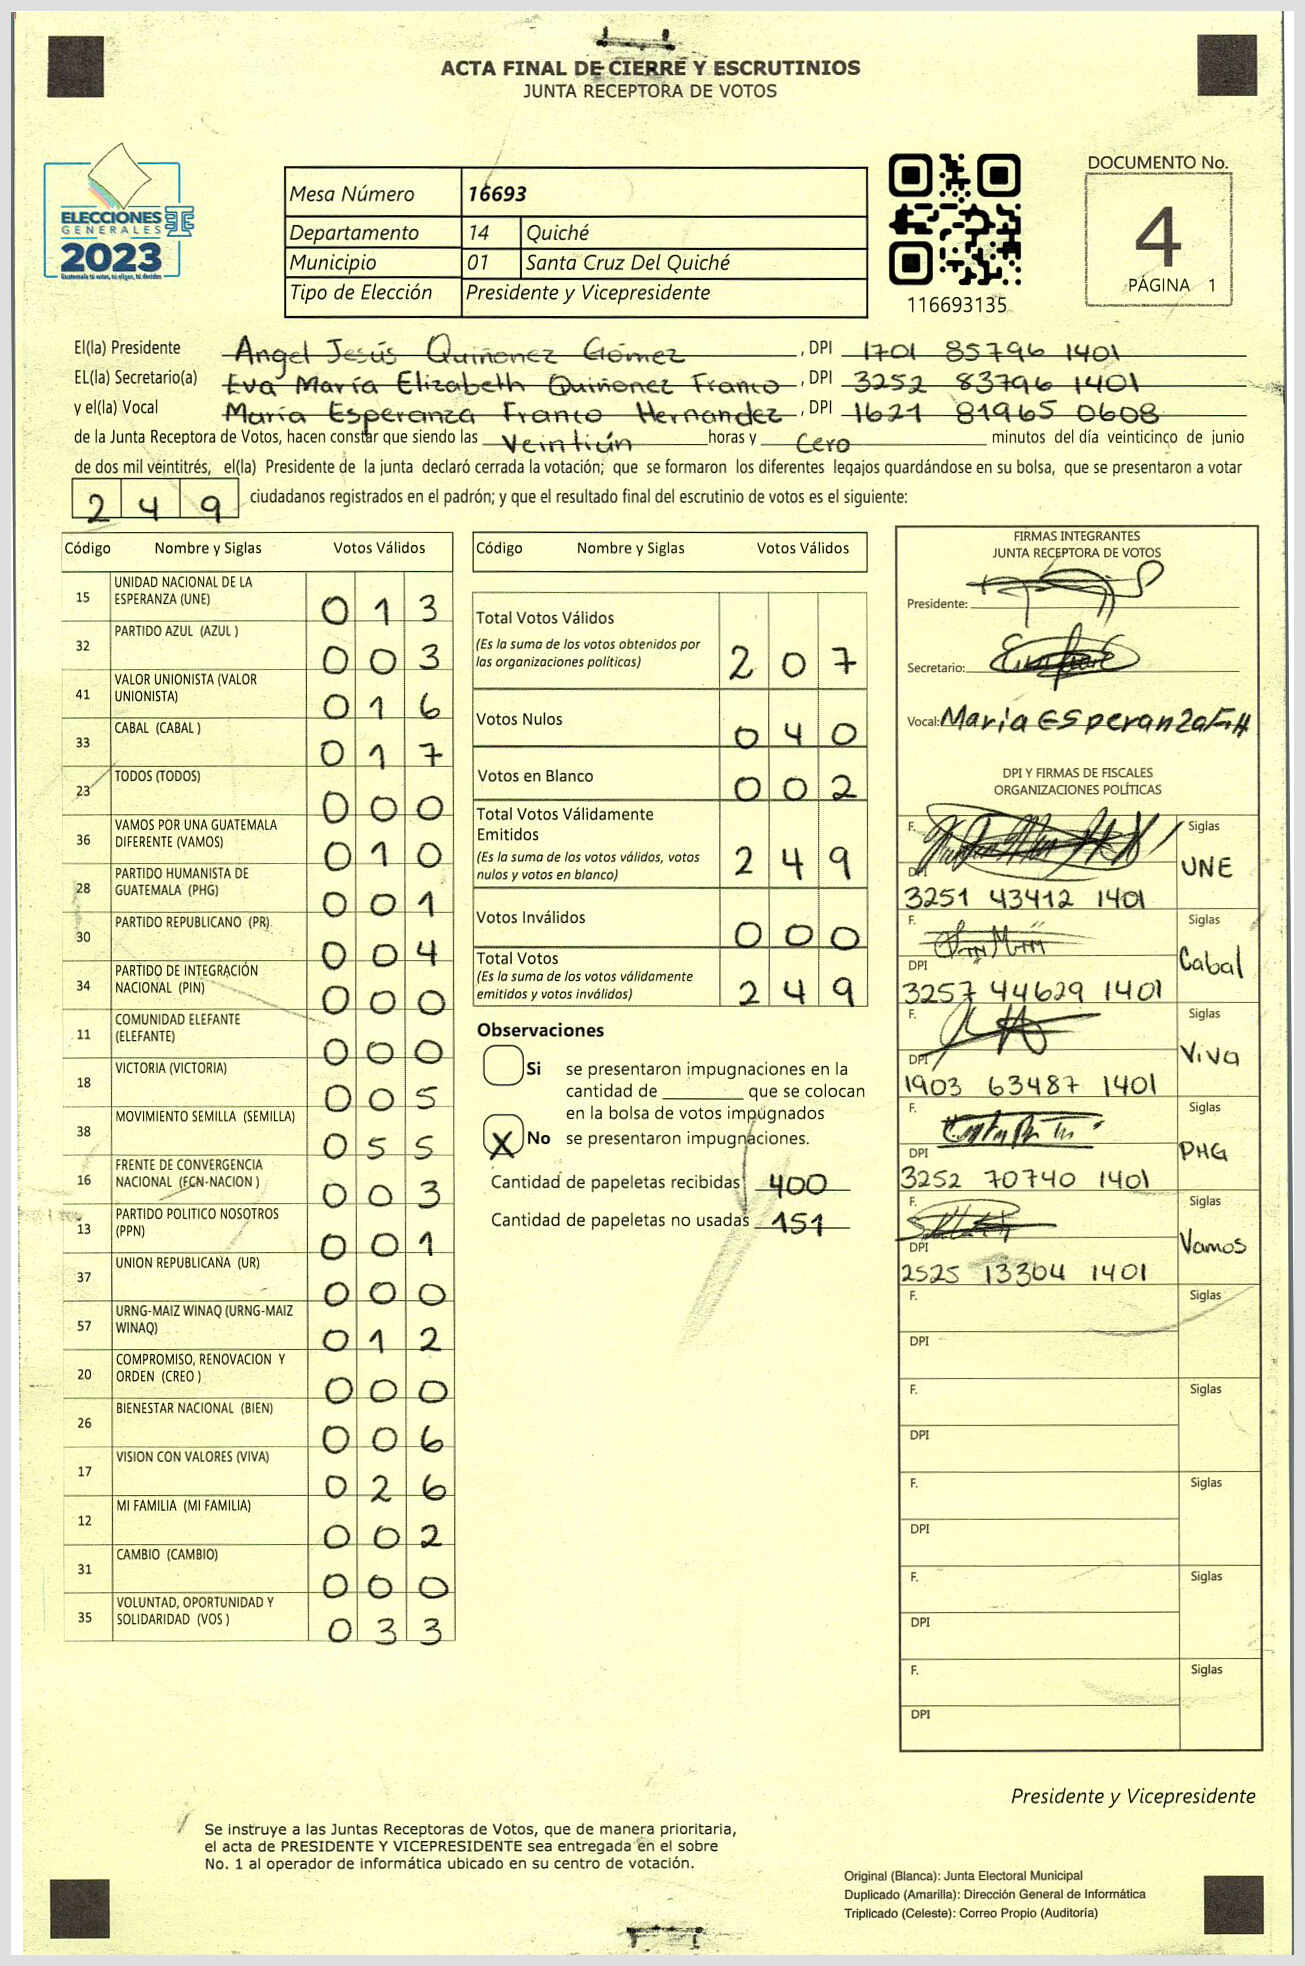 ACTA FINAL DE CIERRE Y ESCRUTINIOS
JUNTA RECEPTORA DE VOTOS
ELECCIONES
GENERALES
2023
Guatemala tú votas, tú eliges, tú decides
Mesa Número 16693
Departamento 14 Quiché
Municipio 01 Santa Cruz Del Quiché
Tipo de Elección Presidente y Vicepresidente
116693135
DOCUMENTO No.
4
PÁGINA 1
El(la) Presidente Angel Jesús Quiñonez Gómez, DPI 1701 85796 1401
EL(la) Secretario(a) Eva María Elizabeth Quiñonez Franco, DPI 3252 83796 1401
y el(la) Vocal María Esperanza Franco Hernandez, DPI 1621 81965 0608
de la Junta Receptora de Votos, hacen constar que siendo las Veintiún horas y Cero minutos del día veinticinco de junio
de dos mil veintitrés, el(la) Presidente de la junta declaró cerrada la votación; que se formaron los diferentes legajos guardándose en su bolsa, que se presentaron a votar
249 ciudadanos registrados en el padrón; y que el resultado final del escrutinio de votos es el siguiente:
Código Nombre y Siglas Votos Válidos
15 UNIDAD NACIONAL DE LA ESPERANZA (UNE) 013
32 PARTIDO AZUL (AZUL ) 003
41 VALOR UNIONISTA (VALOR UNIONISTA) 016
33 CABAL (CABAL ) 017
23 TODOS (TODOS) 000
36 VAMOS POR UNA GUATEMALA DIFERENTE (VAMOS) 010
28 PARTIDO HUMANISTA DE GUATEMALA (PHG) 001
30 PARTIDO REPUBLICANO (PR) 004
34 PARTIDO DE INTEGRACIÓN NACIONAL (PIN) 000
11 COMUNIDAD ELEFANTE (ELEFANTE) 000
18 VICTORIA (VICTORIA) 005
38 MOVIMIENTO SEMILLA (SEMILLA) 055
16 FRENTE DE CONVERGENCIA NACIONAL (FCN-NACION ) 003
13 PARTIDO POLITICO NOSOTROS (PPN) 001
37 UNION REPUBLICANA (UR) 000
57 URNG-MAIZ WINAQ (URNG-MAIZ WINAQ) 012
20 COMPROMISO, RENOVACION Y ORDEN (CREO ) 000
26 BIENESTAR NACIONAL (BIEN) 006
17 VISION CON VALORES (VIVA) 026
12 MI FAMILIA (MI FAMILIA) 002
31 CAMBIO (CAMBIO) 000
35 VOLUNTAD, OPORTUNIDAD Y SOLIDARIDAD (VOS ) 033
Código Nombre y Siglas Votos Válidos
Total Votos Válidos 207
(Es la suma de los votos obtenidos por
las organizaciones políticas)
Votos Nulos 040
Votos en Blanco 002
Total Votos Válidamente
Emitidos 249
(Es la suma de los votos válidos, votos
nulos y votos en blanco)
Votos Inválidos 000
Total Votos 249
(Es la suma de los votos válidamente
emitidos y votos inválidos)
Observaciones
Si se presentaron impugnaciones en la
cantidad de ________ que se colocan
en la bolsa de votos impugnados
X No se presentaron impugnaciones.
Cantidad de papeletas recibidas 400
Cantidad de papeletas no usadas 151
FIRMAS INTEGRANTES
JUNTA RECEPTORA DE VOTOS
Presidente:
Secretario:
Vocal: Maria Esperanza FH
DPI Y FIRMAS DE FISCALES
ORGANIZACIONES POLÍTICAS
F. Siglas UNE
DPI 3251 43412 1401
F. Siglas Cabal
DPI 3257 44629 1401
F. Siglas Viva
DPI 1903 63487 1401
F. Siglas PHG
DPI 3252 70740 1401
F. Siglas Vamos
DPI 2525 13304 1401
F. Siglas
DPI
F. Siglas
DPI
F. Siglas
DPI
F. Siglas
DPI
F. Siglas
DPI
Presidente y Vicepresidente
Se instruye a las Juntas Receptoras de Votos, que de manera prioritaria,
el acta de PRESIDENTE Y VICEPRESIDENTE sea entregada en el sobre
No. 1 al operador de informática ubicado en su centro de votación.
Original (Blanca): Junta Electoral Municipal
Duplicado (Amarilla): Dirección General de Informática
Triplicado (Celeste): Correo Propio (Auditoría)